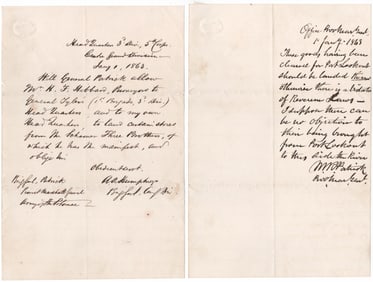 Head Quarters 3d Div. 5th Corps
Centre Grand Division
Jany 1, 1863.
Will General Patrick allow
Mr. H. F. Hubbard, Purveyor to
General Tyler's (1st Brigade, 3d Div.)
Head Quarters and to my own
Head Quarters to land certain stores
from the Schooner Three Brothers, of
which he has the manifest, and
oblige his
Obedient Servt.
A. A. Humphreys
Brig Genl. Comg Div
Brig Genl. Patrick
Provost Marshall Genl
Army of the Potomac
Office Prov Mar Genl.
1 Jany / 1863
These goods having been
cleared for Pt. Lookout
should be landed there
Otherwise there is a violation
of Revenue Laws—
I suppose there can
be no objection to
their being brought
from Point Lookout
to this side the River
M. R. Patrick
Prov Mar Genl.